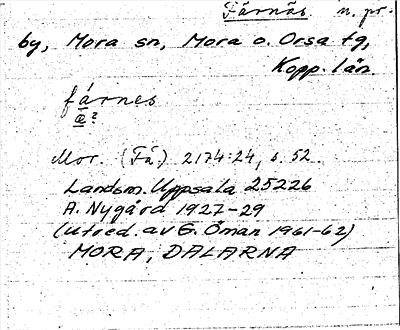 Färnäs. n. pr.
by, Mora sn, Mora o. Orsa tg,
Kopp. län.
fárnes
æ?
Mor. (Fä) 2174:24, s. 52.
Landsm. Uppsala 25226
A. Nygård 1927-29
(Utred. av E. Öman 1961-62)
MORA, DALARNA